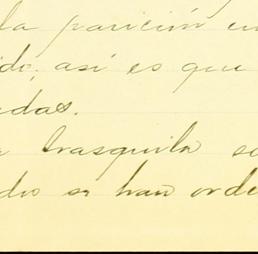 la parición en
ido, así es que
adas.
a trasquila se
dio se han orde